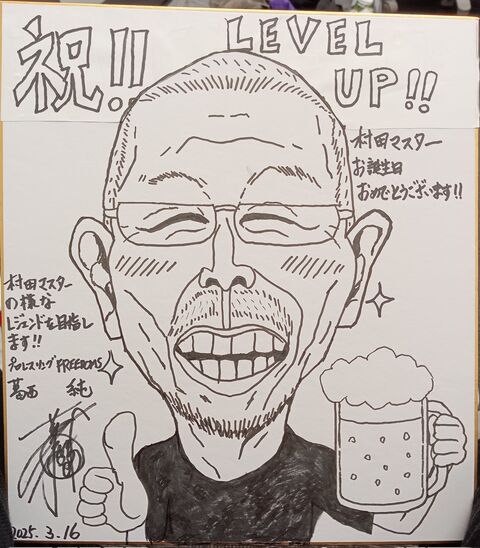 祝!!
LEVEL
UP!!
村田マスター
お誕生日
おめでとうございます!!
村田マスター
の様な
レジェンドを目指し
ます!!
プロレスリングFREEDOMS
葛西 純
2025.3.16